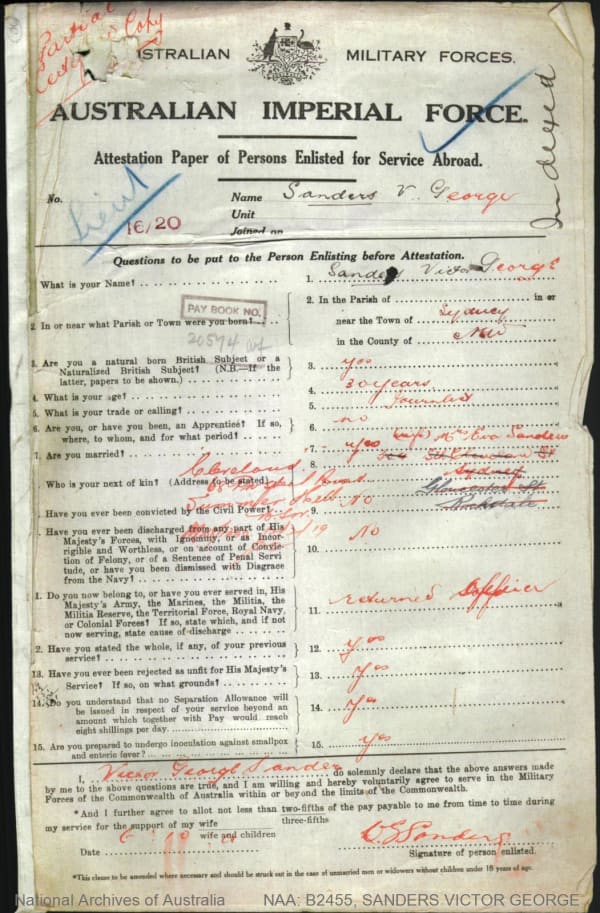 Partial
Copy
STRALIAN MILITARY FORCES.
AUSTRALIAN IMPERIAL FORCE.
Indexed
Attestation Paper of Persons Enlisted for Service Abroad.
No. Name Sanders V. George
Lieut
16/20 Unit
Joined on
Questions to be put to the Person Enlisting before Attestation.
What is your Name? 1. Sanders Victor George
2. In the Parish of in or
PAY BOOK NO. near the Town of Sydney
2. In or near what Parish or Town were you born? in the County of NSW
20574
3. Are you a natural born British Subject or a
Naturalized British Subject? (N.B.—If the 3. yes
latter, papers to be shown.)
4. What is your age? 4. 30 years
5. What is your trade or calling? 5. Journalist
6. Are you, or have you been, an Apprentice? If so, 6. no
where, to whom, and for what period?
7. Are you married? 7. yes (wife) Mrs Eva Sanders
8. Sydney
Cleveland
Who is your next of kin? (Address to be stated)
Have you ever been convicted by the Civil Power? 9. No
Have you ever been discharged from any part of His
Majesty's Forces, with Ignominy, or as Incor-
rigible and Worthless, or on account of Convic- 10. No
tion of Felony, or of a Sentence of Penal Servi-
tude, or have you been Dismissed with Disgrace
from the Navy?
1. Do you now belong to, or have you ever served in, His
Majesty's Army, the Marines, the Militia, the
Militia Reserve, the Territorial Force, Royal Navy, 11. returned
or Colonial Forces? If so, state which, and if not
now serving, state cause of discharge
2. Have you stated the whole, if any, of your previous 12. yes
service?
13. Have you ever been rejected as unfit for His Majesty's 13. yes
Service? If so, on what grounds?
14. Do you understand that no Separation Allowance will
be issued in respect of your service beyond an 14. yes
amount which together with Pay would reach
eight shillings per day.
15. Are you prepared to undergo inoculation against smallpox 15. yes
and enteric fever?
I, Victor George Sanders do solemnly declare that the above answers made
by me to the above questions are true, and I am willing and hereby voluntarily agree to serve in the Military
Forces of the Commonwealth of Australia within or beyond the limits of the Commonwealth.
*And I further agree to allot not less than two-fifths of the pay payable to me from time to time during
three-fifths
my service for the support of my wife
wife and children
V G Sanders
Date Signature of person enlisted.
*This clause to be amended where necessary and should be struck out in the case of unmarried men or widowers without children under 18 years of age.
National Archives of Australia NAA: B2455, SANDERS VICTOR GEORGE